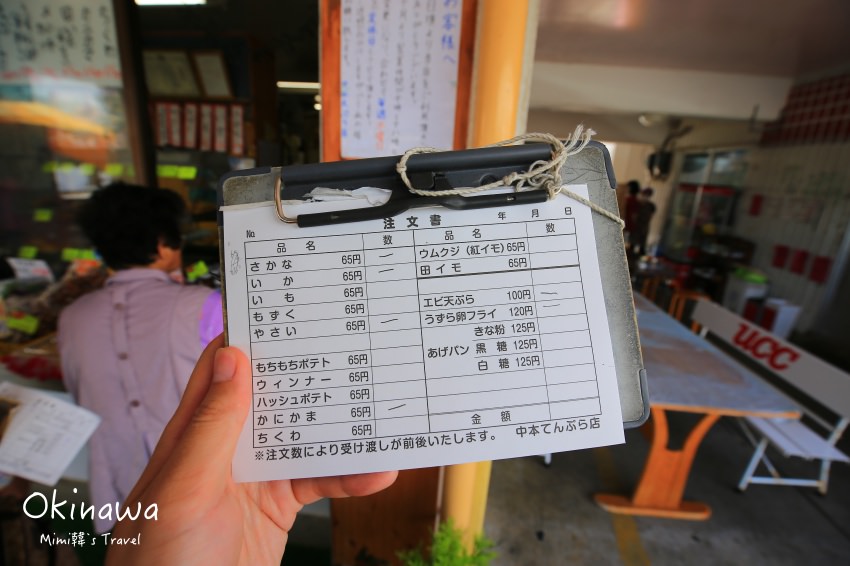 お客様へ
注文書
No 年 月 日
品名 数 品名 数
さかな 65円 一 ウムクジ（紅イモ）65円
いか 65円 一 田イモ 65円
いも 65円
もずく 65円 エビ天ぷら 100円 二
やさい 65円 一 うずら卵フライ 120円
きな粉 125円
もちもちポテト 65円 あげパン 黒糖 125円
ウィンナー 65円 白糖 125円
ハッシュポテト 65円
かにかま 65円 一
ちくわ 65円 金額
※注文数により受け渡しが前後いたします。 中本てんぷら店
UCC
Okinawa
Mimi韓`s Travel